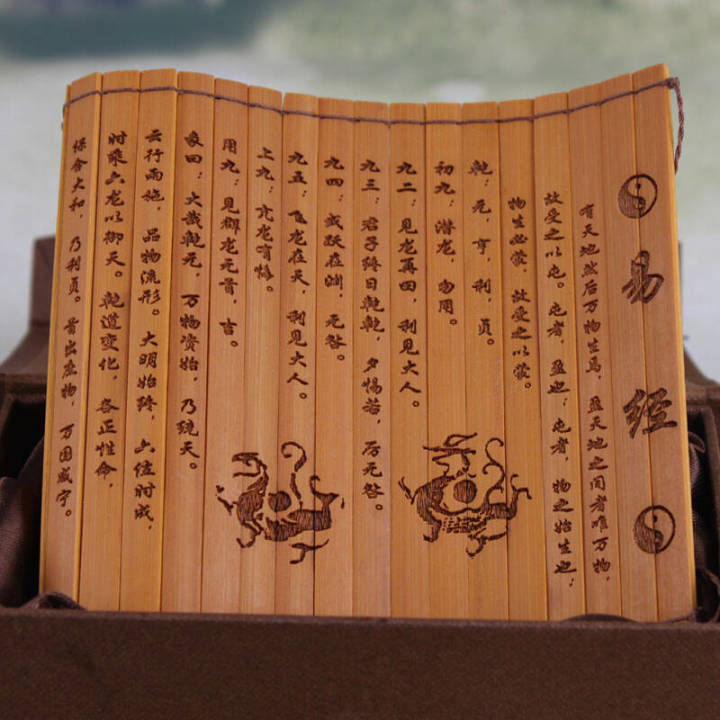 易经
有天地然后万物生焉，盈天地之间者唯万物，
故受之以屯。屯者，盈也；屯者，物之始生也；
物生必蒙，故受之以蒙。
乾：元，亨，利，贞。
初九：潜龙，勿用。
九二：见龙再田，利见大人。
九三：君子终日乾乾，夕惕若，厉无咎。
九四：或跃在渊，无咎。
九五：飞龙在天，利见大人。
上九：亢龙有悔。
用九：见群龙无首，吉。
彖曰：大哉乾元，万物资始，乃统天。
云行雨施，品物流形。大明始终，六位时成，
时乘六龙以御天。乾道变化，各正性命，
保合大和，乃利贞。首出庶物，万国咸宁。